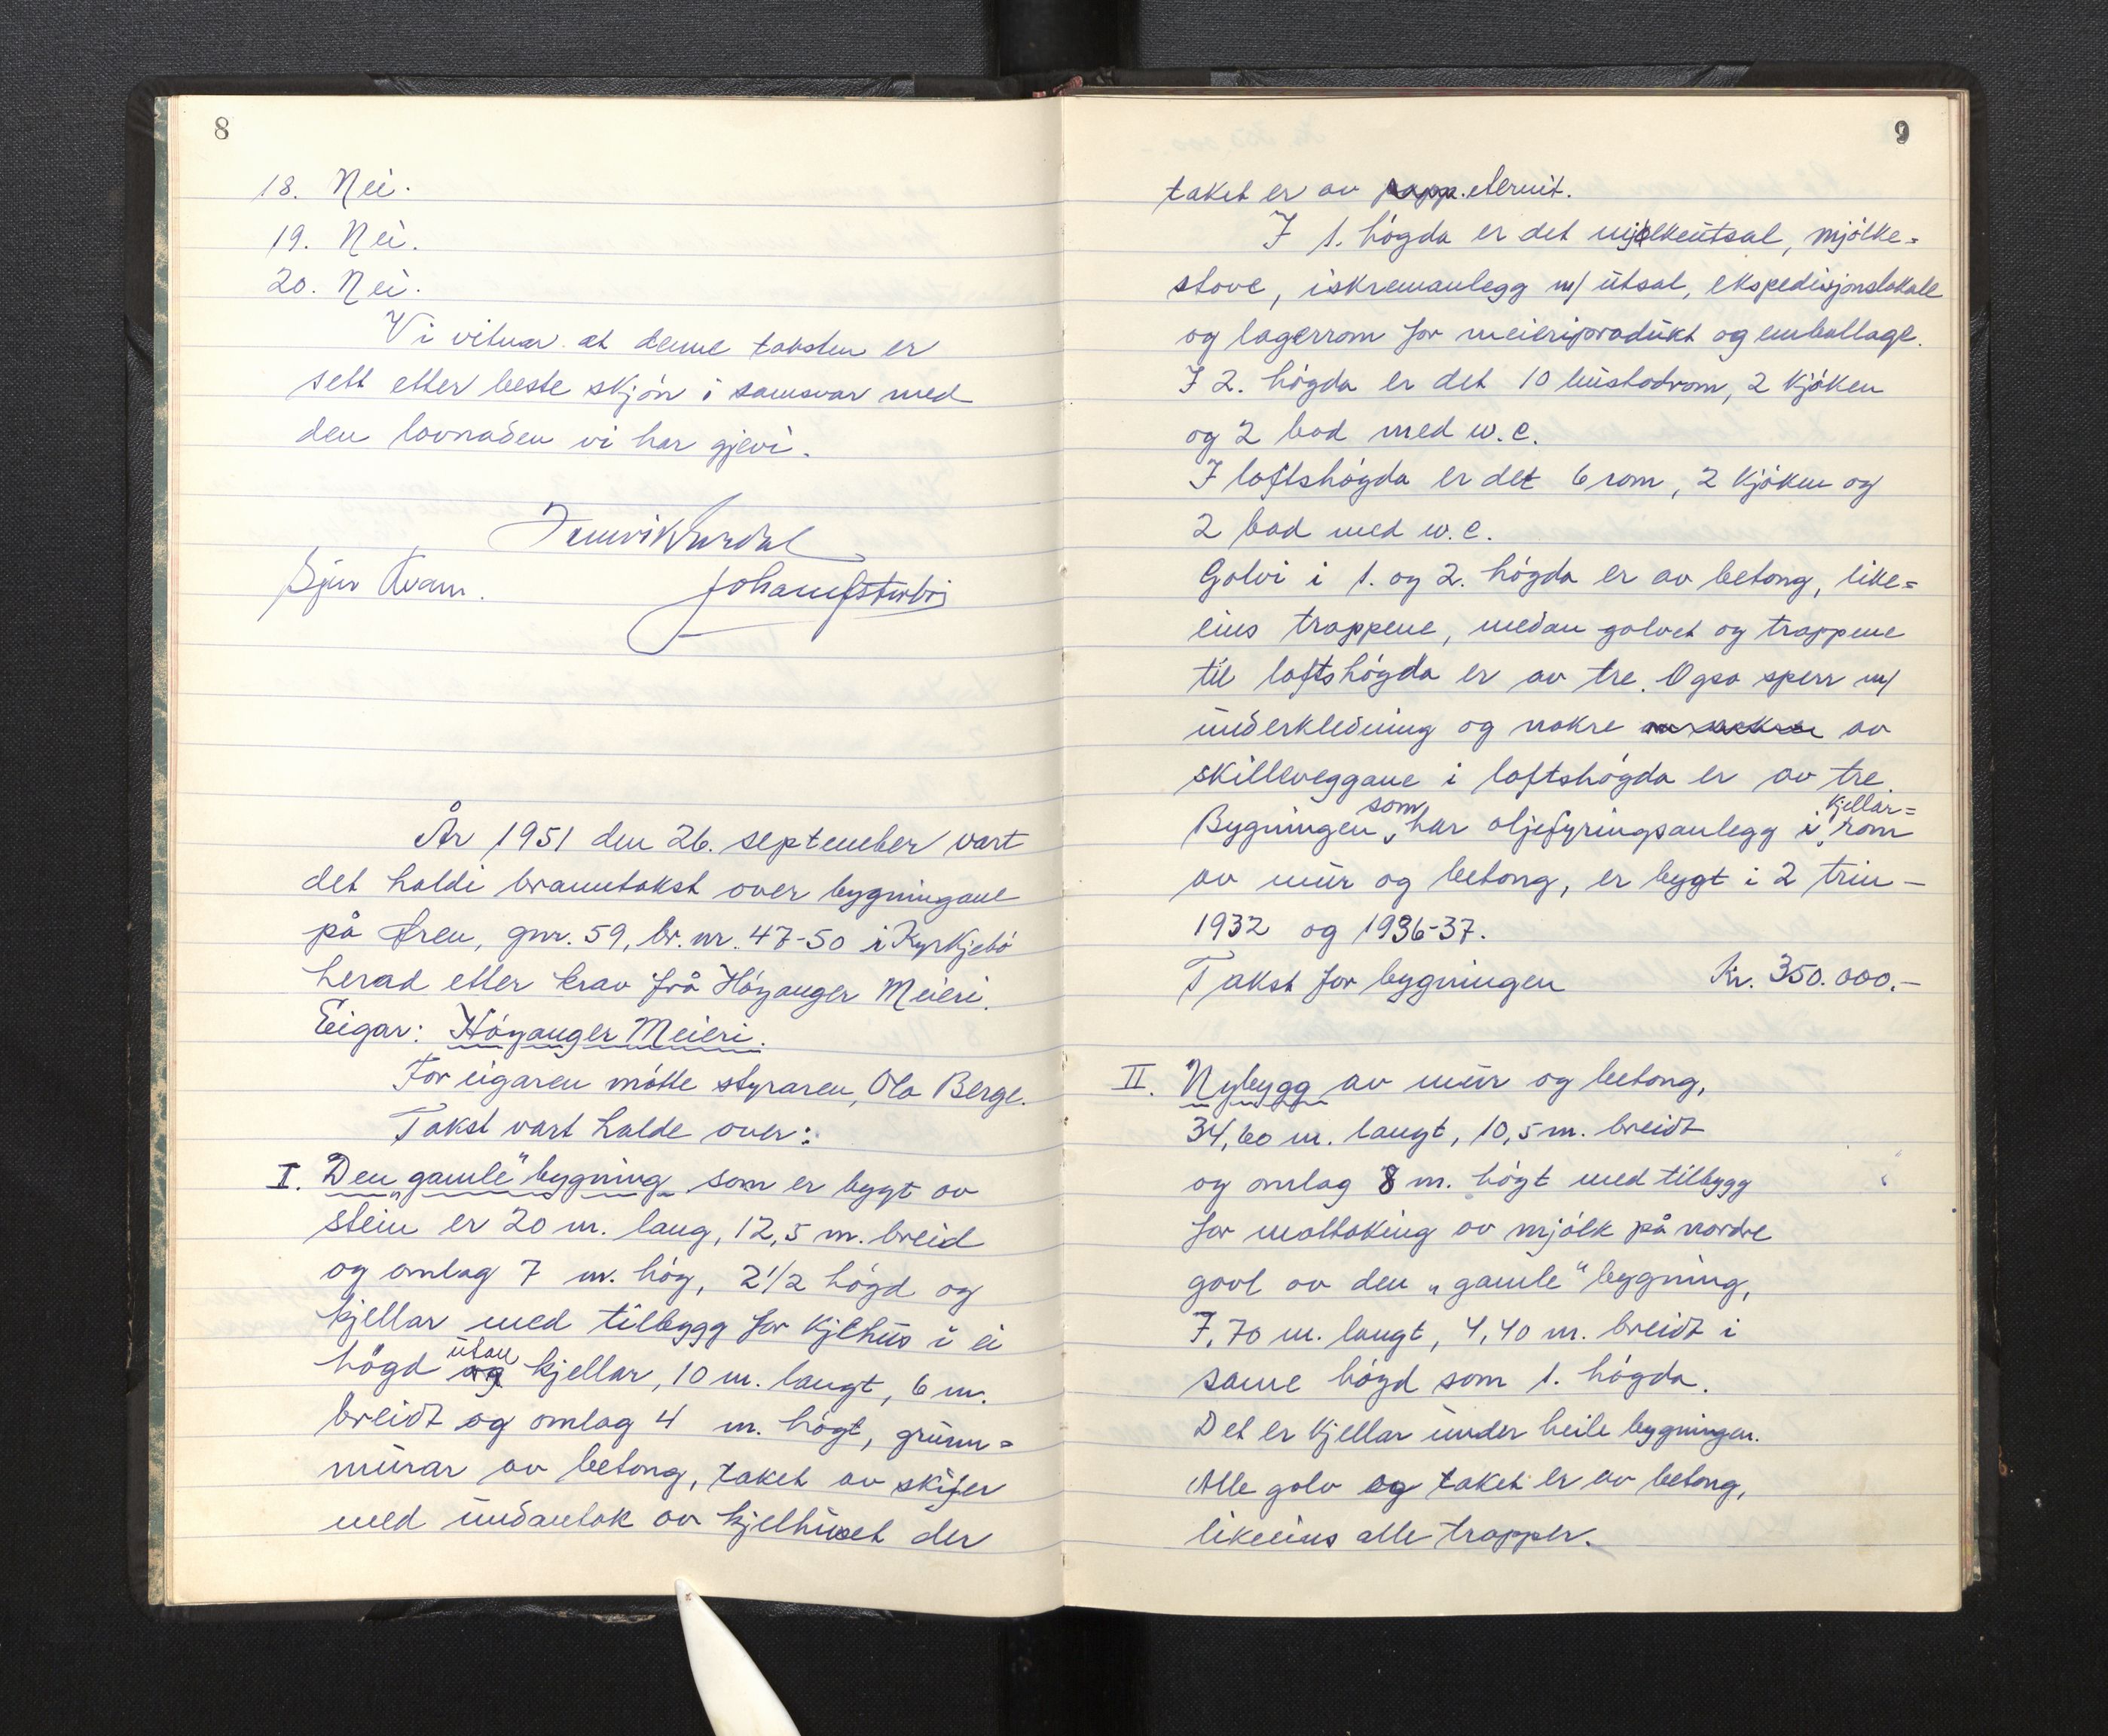 8
18. Nei.
19. Nei.
20. Nei.
Vi vitnar at denne taksten er
sett etter beste skjön i samsvar med
den lovnaden vi har gjevi.
Sjur Kvam.
År 1951 den 26. september vart
det haldi branntakst over bygningane
på Øren, gnr. 59, br. nr. 47-50 i Kyrkjebö
herad etter krav frå Höyanger Meieri.
Eigar: Höyanger Meieri.
For eigaren mötte styraren, Ola Berge.
Takst vart halde over:
I. Den „gamle" bygning som er bygt av
stein er 20 m. lang, 12,5 m. breid
og omlag 7 m. hög, 2 1/2 högd og
kjellar med tilbygg for kjelhus i ei
högd og utan kjellar, 10 m. langt, 6 m.
breidt og omlag 4 m. högt, grunn=
murar av betong, taket av skifer
med undantak av kjelhuset der
9
taket er av papp. eternit.
I 1. högda er det mjölkeutsal, mjölke=
stove, iskremanlegg m/ utsal, ekspedisjonslokale
og lagerrom for meieriprodukt og emballage.
I 2. högda er det 10 bustadrom, 2 kjöken
og 2 bad med w.c.
I loftshögda er det 6 rom, 2 kjöken og
2 bad med w.c.
Golvi i 1. og 2. högda er av betong, like=
eins trappene, medan golvet og trappene
til loftshögda er av tre. Ogso sperr m/
underkledning og nokre av
skilleveggane i loftshögda er av tre.
Bygningen, som har oljefyringsanlegg i kjellar=rom
av mur og betong, er bygt i 2 trin –
1932 og 1936-37.
Takst for bygningen Kr. 350.000.–
II. Nybygg av mur og betong,
34,60 m. langt, 10,5 m. breidt
og omlag 8 m. högt med tilbygg
for mottaking av mjölk på nordre
gavl av den „gamle" bygning,
7,70 m. langt, 4,40 m. breidt i
same högd som 1. högda.
Det er kjellar under heile bygningen.
Alle golv og taket er av betong,
likeeins alle trapper.